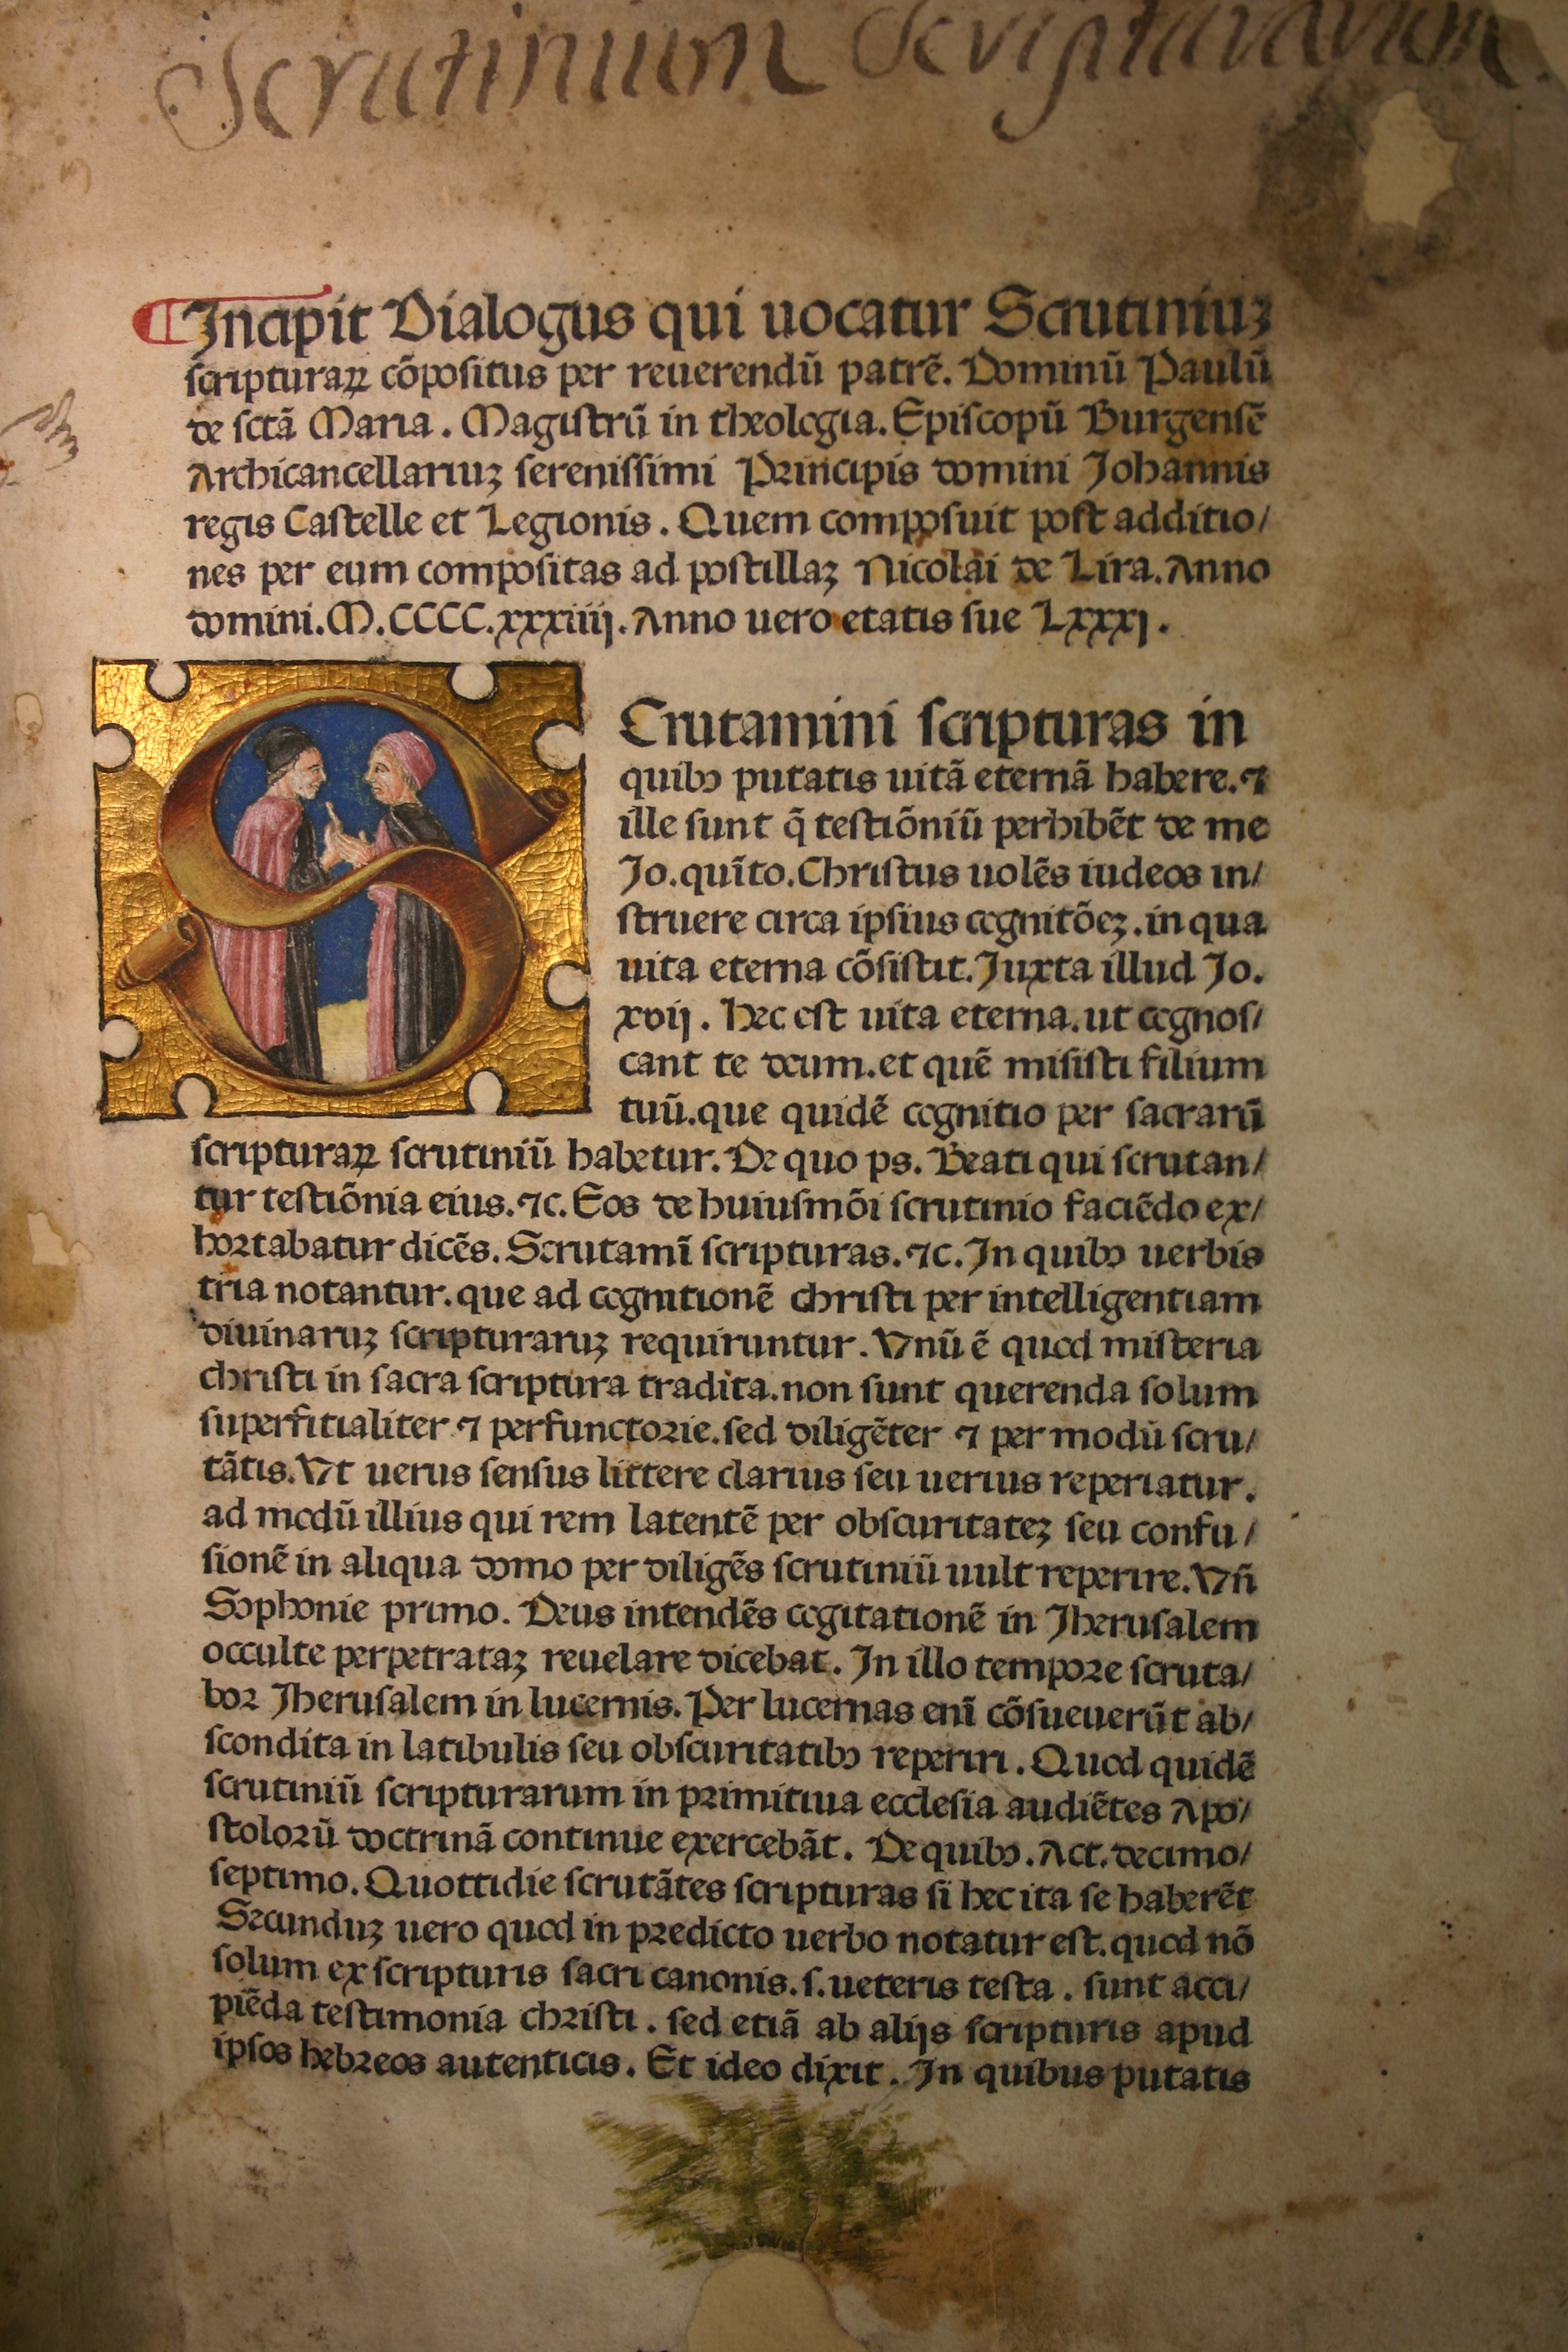 Scrutinium Scripturarum.
Incipit Dialogus qui uocatur Scrutiniuꝫ
scripturaꝝ cõpositus per reuerendũ patrẽ. Dominũ Paulũ
de sctã Maria. Magistrũ in theologia. Episcopũ Burgensẽ
Archicancellariuꝫ serenissimi Principis domini Johannis
regis Castelle et Legionis. Quem composuit post additio/
nes per eum compositas ad postillaꝫ Nicolai de Lira. Anno
domini. M.CCCC.xxxiiij. Anno uero etatis sue Lxxxj.
SCrutamini scripturas in
quibꝰ putatis uitã eternã habere. ⁊
ille sunt q̃ testiõniũ perhibẽt de me
Jo. quĩto. Christus uolẽs iudeos in/
struere circa ipsius cognitõeꝫ. in qua
uita eterna cõsistit. Juxta illud Jo.
xvij. Hec est uita eterna. ut cognos/
cant te deum. et quẽ misisti filium
tuũ. que quidẽ cognitio per sacrarũ
scripturaꝝ scrutiniũ habetur. De quo ps. Beati qui scrutan/
tur testiõnia eius. ⁊c. Eos de huiusmõi scrutinio faciẽdo ex/
hortabatur dicẽs. Scrutamĩ scripturas. ⁊c. In quibꝰ uerbis
tria notantur. que ad cognitionẽ christi per intelligentiam
diuinaruꝫ scripturaruꝫ requiruntur. Vnũ ẽ quod misteria
christi in sacra scriptura tradita. non sunt querenda solum
superfitialiter ⁊ perfunctorie. sed diligẽter ⁊ per modũ scru/
tãtis. Vt uerus sensus littere clarius seu uerius reperiatur.
ad modũ illius qui rem latentẽ per obscuritateꝫ seu confu/
sionẽ in aliqua domo per diligẽs scrutiniũ uult reperire. Vñ
Sophonie primo. Deus intendẽs cogitationẽ in Jherusalem
occulte perpetrataꝫ reuelare dicebat. In illo tempore scruta/
bor Jherusalem in lucernis. Per lucernas enĩ cõsueuerũt ab/
scondita in latibulis seu obscuritatibꝰ reperiri. Quod quidẽ
scrutiniũ scripturarum in primitiua ecclesia audiẽtes Apo/
stolorũ doctrinã continue exercebãt. De quibꝰ. Act. decimo/
septimo. Quottidie scrutãtes scripturas si hec ita se haberẽt
Secunduꝫ uero quod in predicto uerbo notatur est. quod nõ
solum ex scripturis sacri canonis. s. ueteris testa. sunt acci/
piẽda testimonia christi. sed etiã ab alijs scripturis apud
ipsos hebreos autenticis. Et ideo dixit. In quibus putatis